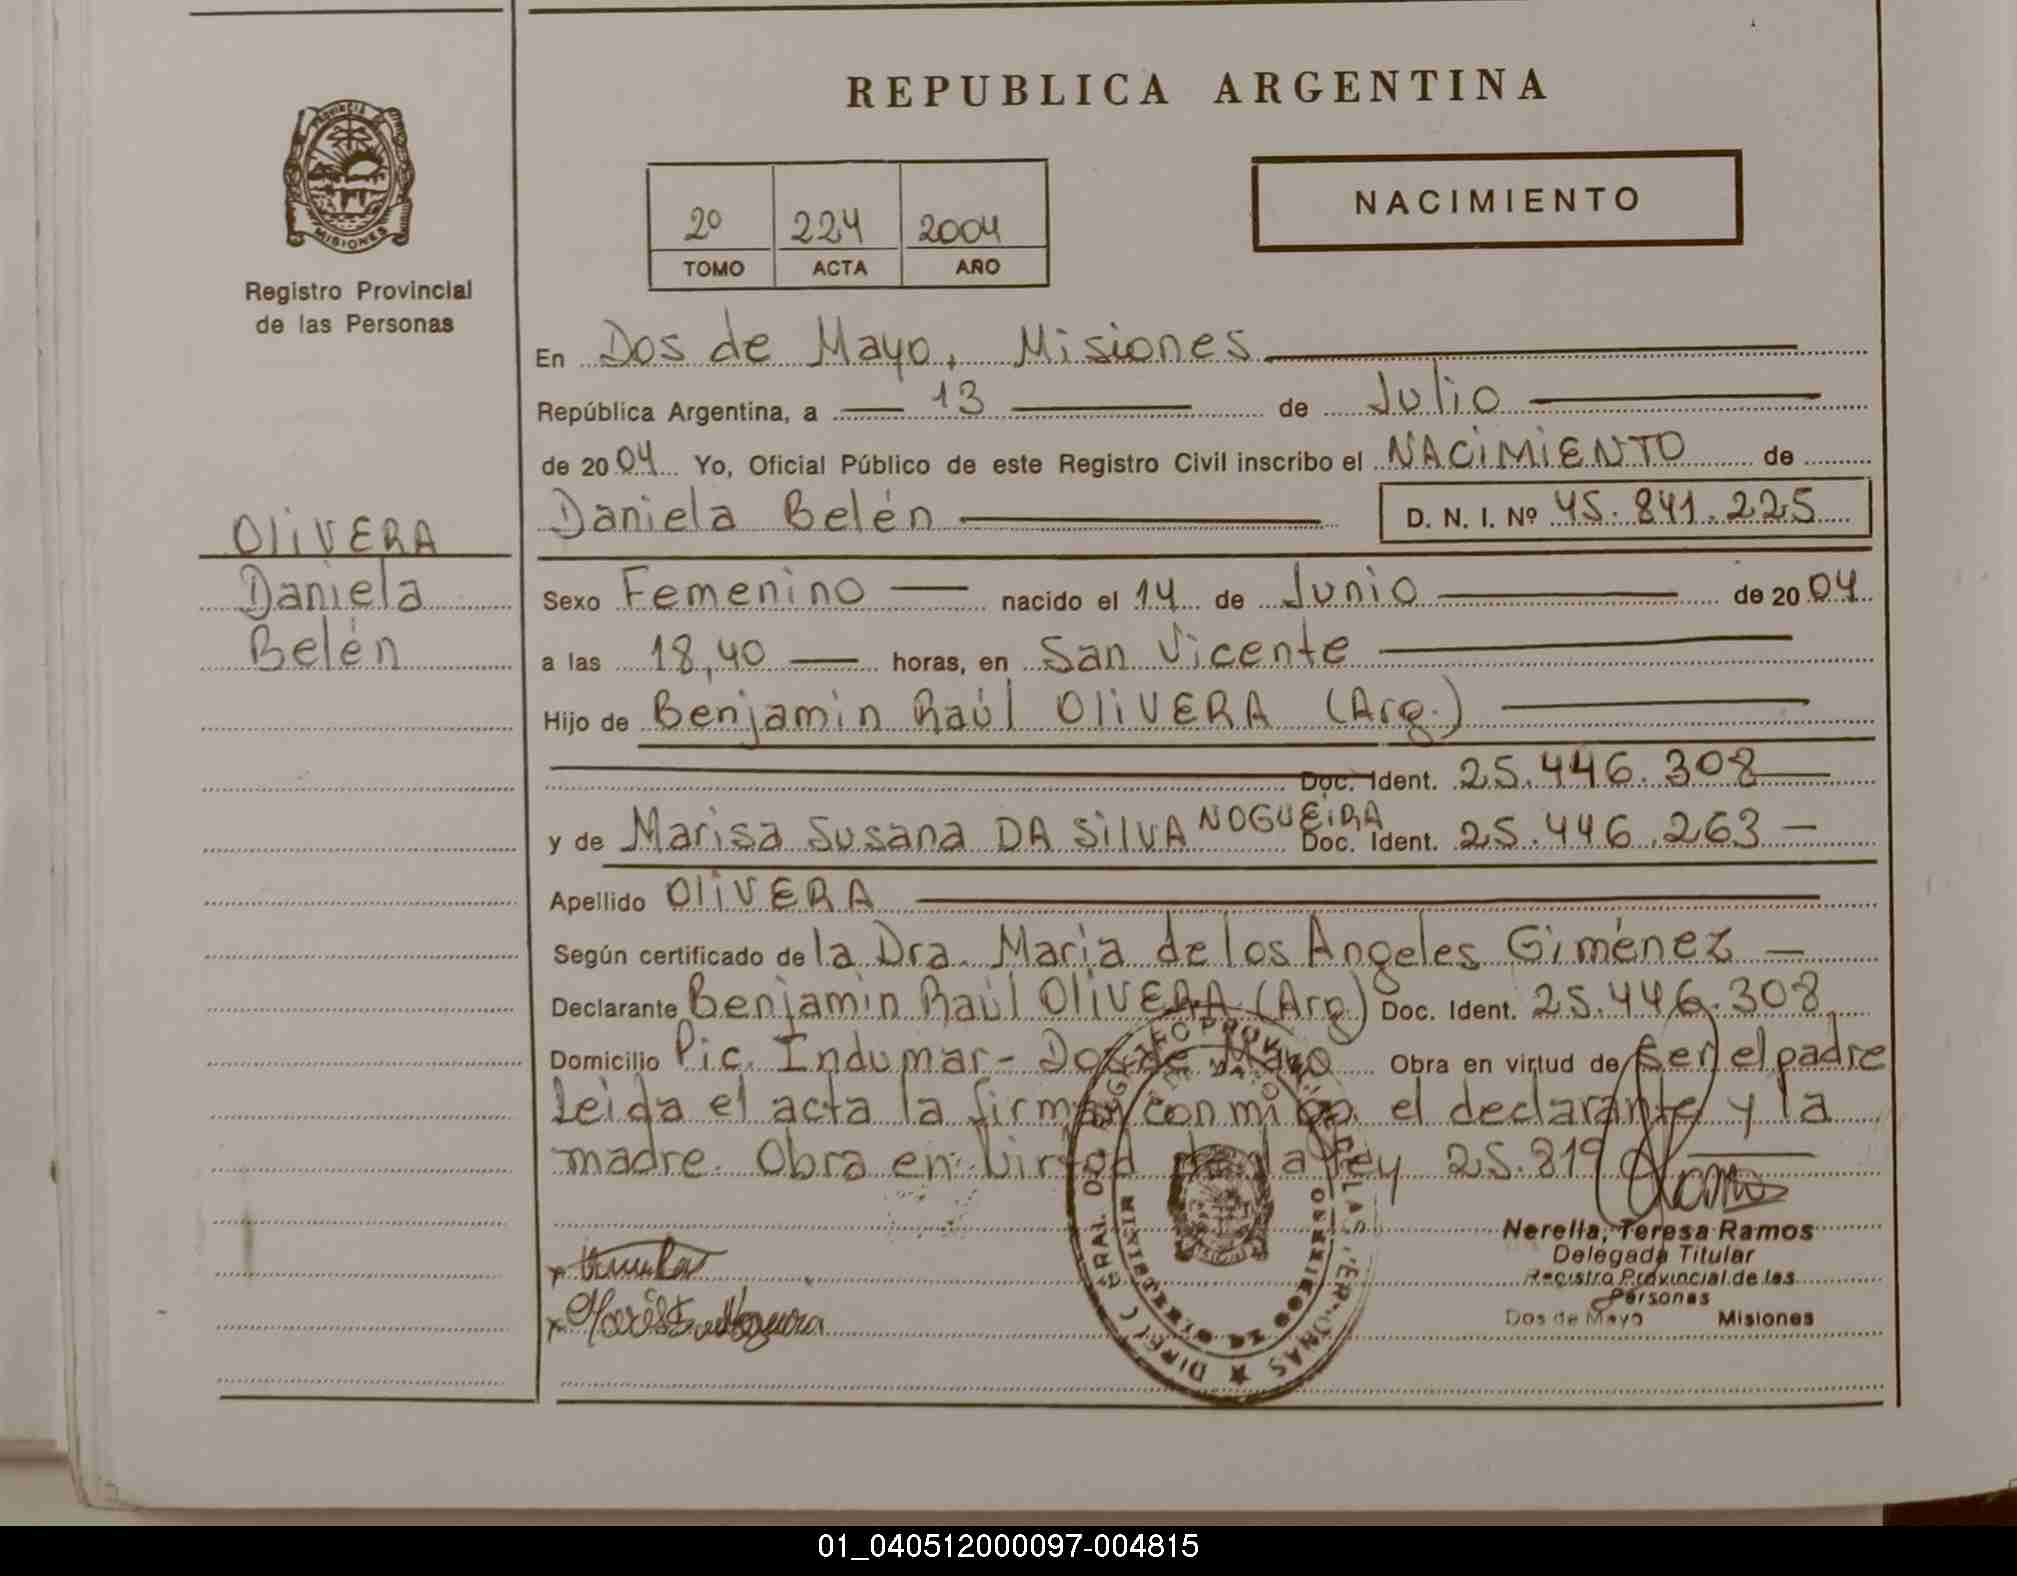 REPUBLICA ARGENTINA
PROVINCIA DE
MISIONES
Registro Provincial
de las Personas
2º 224 2004
TOMO ACTA AÑO
NACIMIENTO
En Dos de Mayo, Misiones
República Argentina, a 13 de Julio
de 2004 Yo, Oficial Público de este Registro Civil inscribo el NACIMIENTO de
Daniela Belén D. N. I. Nº 45.841.225
OLIVERA
Daniela
Belén
Sexo Femenino nacido el 14 de Junio de 2004
a las 18,40 horas, en San Vicente
Hijo de Benjamin Raúl OLIVERA (Arg.)
Doc. Ident. 25.446.308
y de Marisa Susana DA SILVA NOGUEIRA Doc. Ident. 25.446.263
Apellido OLIVERA
Según certificado de la Dra. Maria de los Angeles Giménez
Declarante Benjamin Raúl OLIVERA (Arg) Doc. Ident. 25.446.308
Domicilio Pic. Indumar - Dos de Mayo Obra en virtud de Ser el padre
Leida el acta la firman conmigo el declarante y la
madre. Obra en Virtud de la Ley 25.819
Nerella, Teresa Ramos
Delegada Titular
Registro Provincial de las
Personas
Dos de Mayo Misiones
01_040512000097-004815